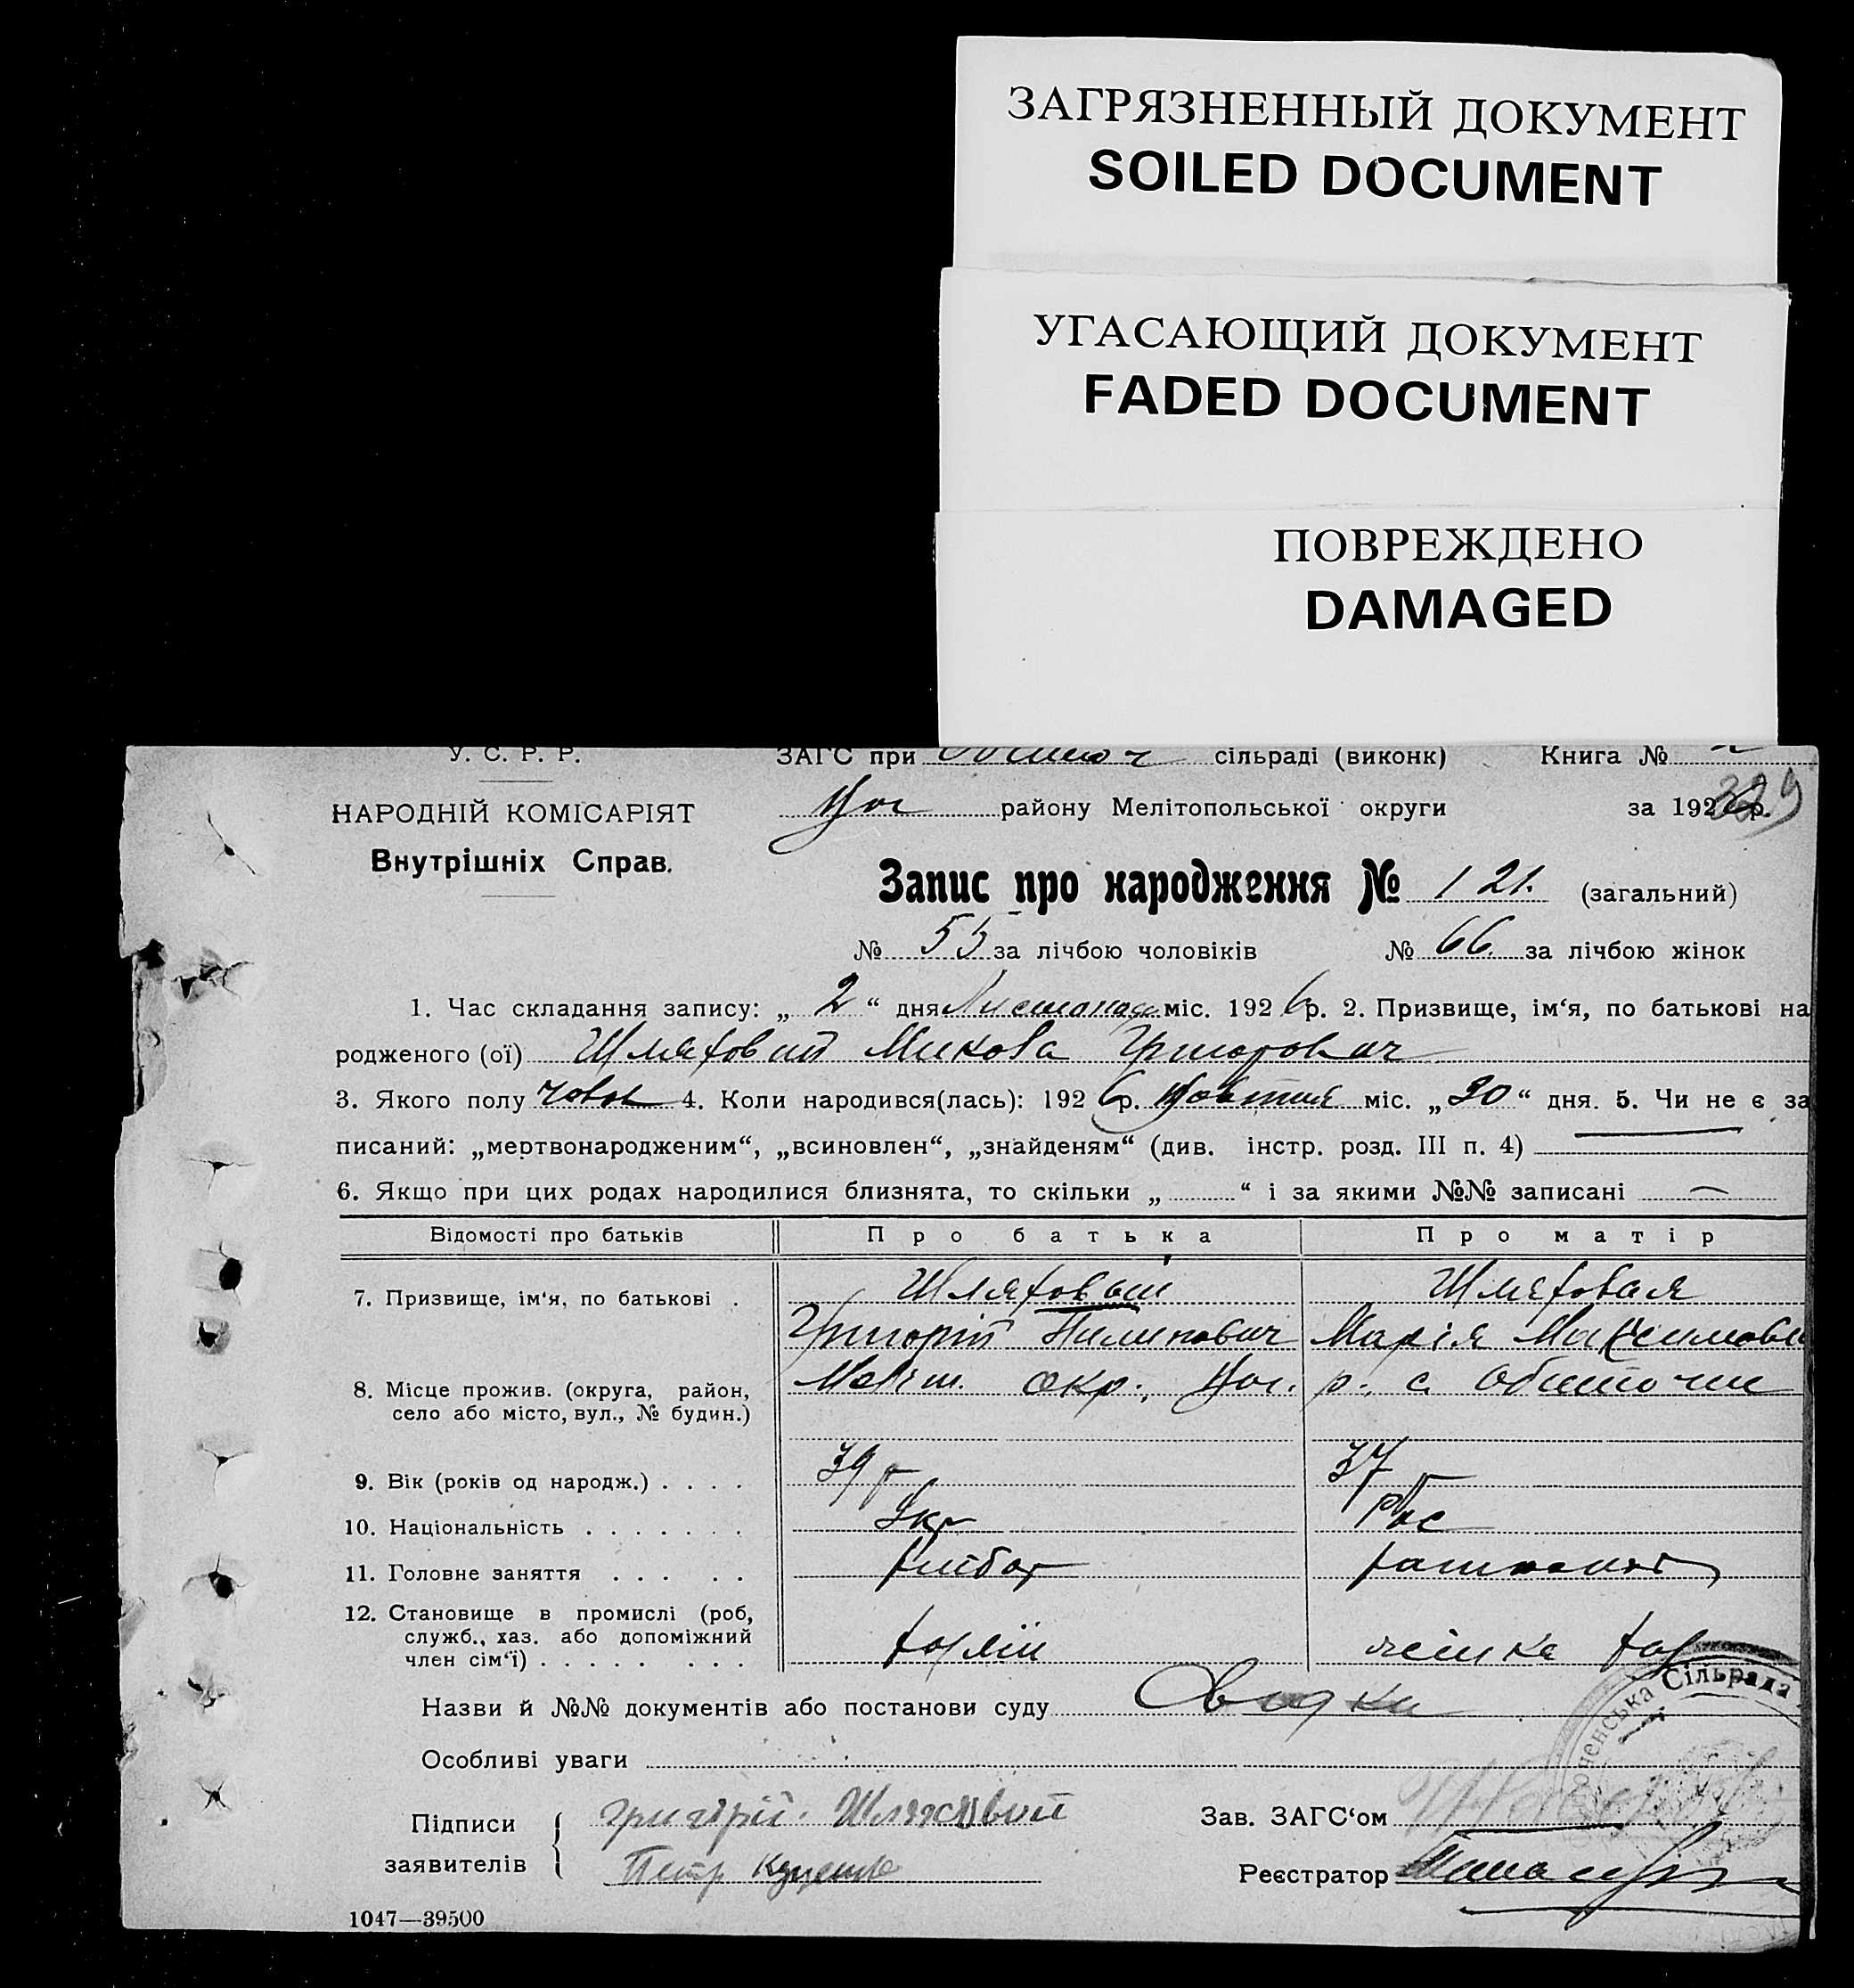 ЗАГРЯЗНЕННЫЙ ДОКУМЕНТ
SOILED DOCUMENT
УГАСАЮЩИЙ ДОКУМЕНТ
FADED DOCUMENT
ПОВРЕЖДЕНО
DAMAGED
У. С. Р. Р. ЗАГС при сільраді (виконк) Книга №
329
НАРОДНІЙ КОМІСАРІЯТ району Мелітопольської округи за 192 р.
Внутрішніх Справ.
Запис про народження № 121. (загальний)
№ 55 за лічбою чоловіків № 66. за лічбою жінок
1. Час складання запису: „ 2 “ дня Листопад міс. 192 6 р. 2. Призвище, ім‘я, по батькові на
родженого (ої) Шляховий Микола Григорович
3. Якого полу чолов 4. Коли народився(лась): 192 6 р. Жовтня міс. „ 30 “ дня. 5. Чи не є за
писаний: „мертвонародженим“, „всиновлен“, „знайденям“ (див. інстр. розд. III п. 4)
6. Якщо при цих родах народилися близнята, то скільки „ “ і за якими №№ записані
Відомості про батьків Про батька Про матір
7. Призвище, ім‘я, по батькові . Шляховый Шляховая
Григорій Пилипович Марія Максимовн
8. Місце прожив. (округа, район, село або місто, вул., № будин.) Меліт. окр., р. с. Обиточни
9. Вік (років од народж.) . . . . 39 р 37
10. Національність . . . . . . . Укр Рос
11. Головне заняття . . . . . хлібор
12. Становище в промислі (роб,
служб., хаз. або допоміжний
член сім‘ї) . . . . . . . .
Назви й №№ документів або постанови суду
Особливі уваги
Сільрада
Підписи Григорій Шляховий Зав. ЗАГС‘ом
заявителів Петр Реєстратор
1047—39500